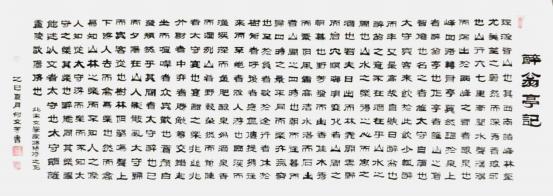 醉翁亭記
環滁皆山也其西南諸峰林壑
尤美望之蔚然而深秀者琅琊
也山行六七里漸聞水聲潺潺
而瀉出於兩峰之間者釀泉也
峰回路轉有亭翼然臨於泉上
者醉翁亭也作亭者誰山之僧
智僊也名之者誰太守自謂也
太守與客來飲於此飲少輒醉
而年又最高故自號曰醉翁也
醉翁之意不在酒在乎山水之
間也山水之樂得之心而寓之
酒也若夫日出而林霏開雲歸
而巖穴暝晦明變化者山間之
朝暮也野芳發而幽香佳木秀
而繁陰風霜高潔水落而石出
者山間之四時也朝而往暮而
歸四時之景不同而樂亦無窮
也至於負者歌於途行者休於
樹前者呼後者應傴僂提攜往
來而不絕者滁人遊也臨溪而
漁溪深而魚肥釀泉為酒泉香
而酒洌山肴野蔌雜然而前陳
者太守宴也宴酣之樂非絲非
竹射者中弈者勝觥籌交錯起
坐而喧嘩者眾賓歡也蒼顏白
髮頹然乎其間者太守醉也已
而夕陽在山人影散亂太守歸
而賓客從也樹林陰翳鳴聲上
下遊人去而禽鳥樂也然而禽
鳥知山林之樂而不知人之樂
人知從太守遊而樂而不知太
守之樂其樂也醉能同其樂醒
能述以文者太守也太守謂誰
廬陵歐陽修也
北宋文學家歐陽修
乙巳夏月何文書